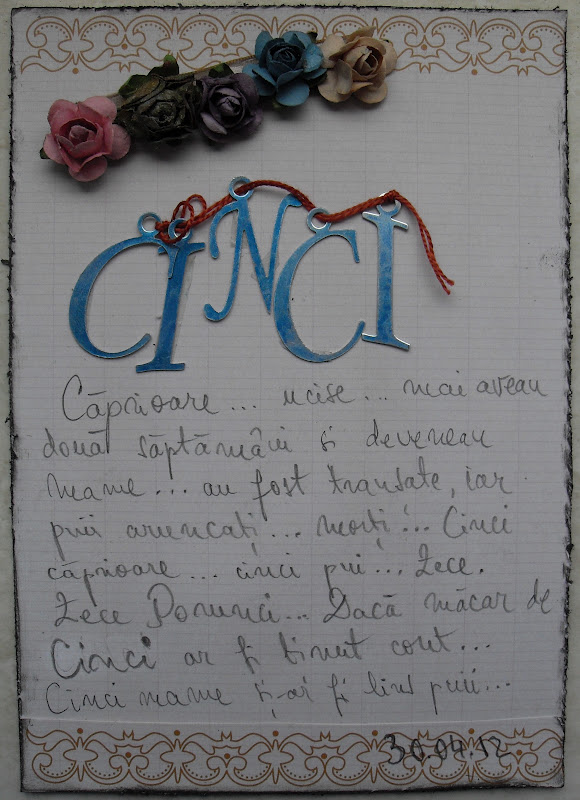 CINCI
Căprioare... ucise... mai aveau
două săptămâni și deveneau
mame... au fost tranșate, iar
puii aruncați... morți!... Cinci
căprioare... cinci pui... Zece.
Zece Porunci... Dacă măcar de
Cinci ar fi ținut cont...
Cinci mame și-ar fi puii...
30.04.12